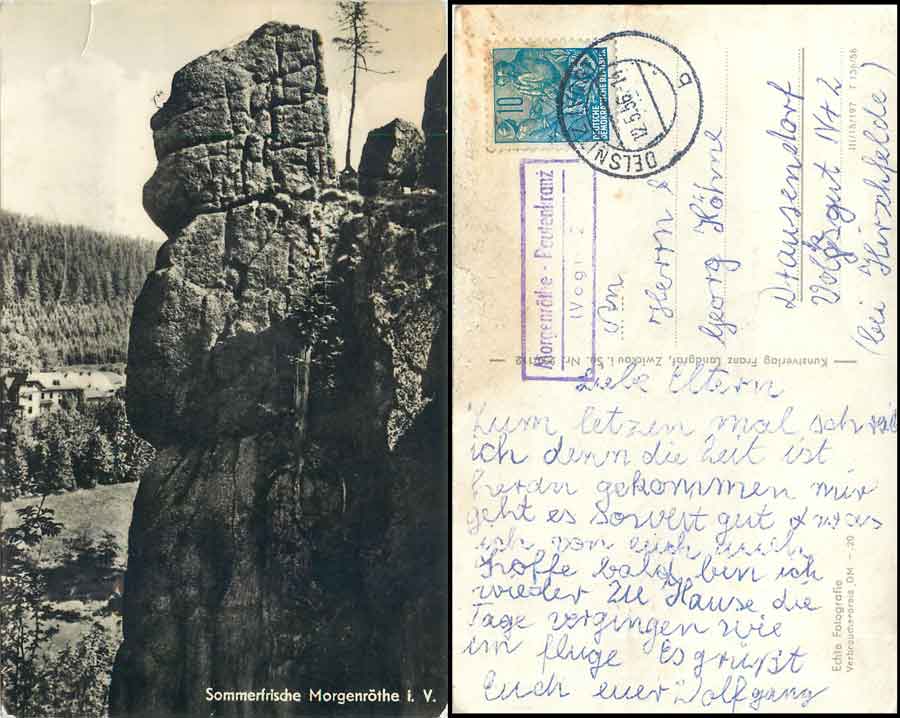 Sommerfrische Morgenröthe i. V.
10
DEUTSCHE
DEMOKRATISCHE REPUBLIK
12.5.56
b
Morgenröthe - Rautenkranz
(Vogtl.)
An
Herrn
Georg Höhne
Drausendorf
Volksgut Nr 2
(bei Hirschfelde)
III/18/197 T 156/56
Kunstverlag Franz Landgraf, Zwickau i. Sa. Nr.
Echte Fotografie
Verbraucherpreis DM —.20
Liebe Eltern
Zum letzen mal schreib
ich denn die Zeit ist
heran gekommen mir
geht es soweit gut
ich von euch auch
hoffe bald bin ich
wieder zu Hause die
Tage vergingen wie
im fluge Es grüßt
Euch euer Wolfgang